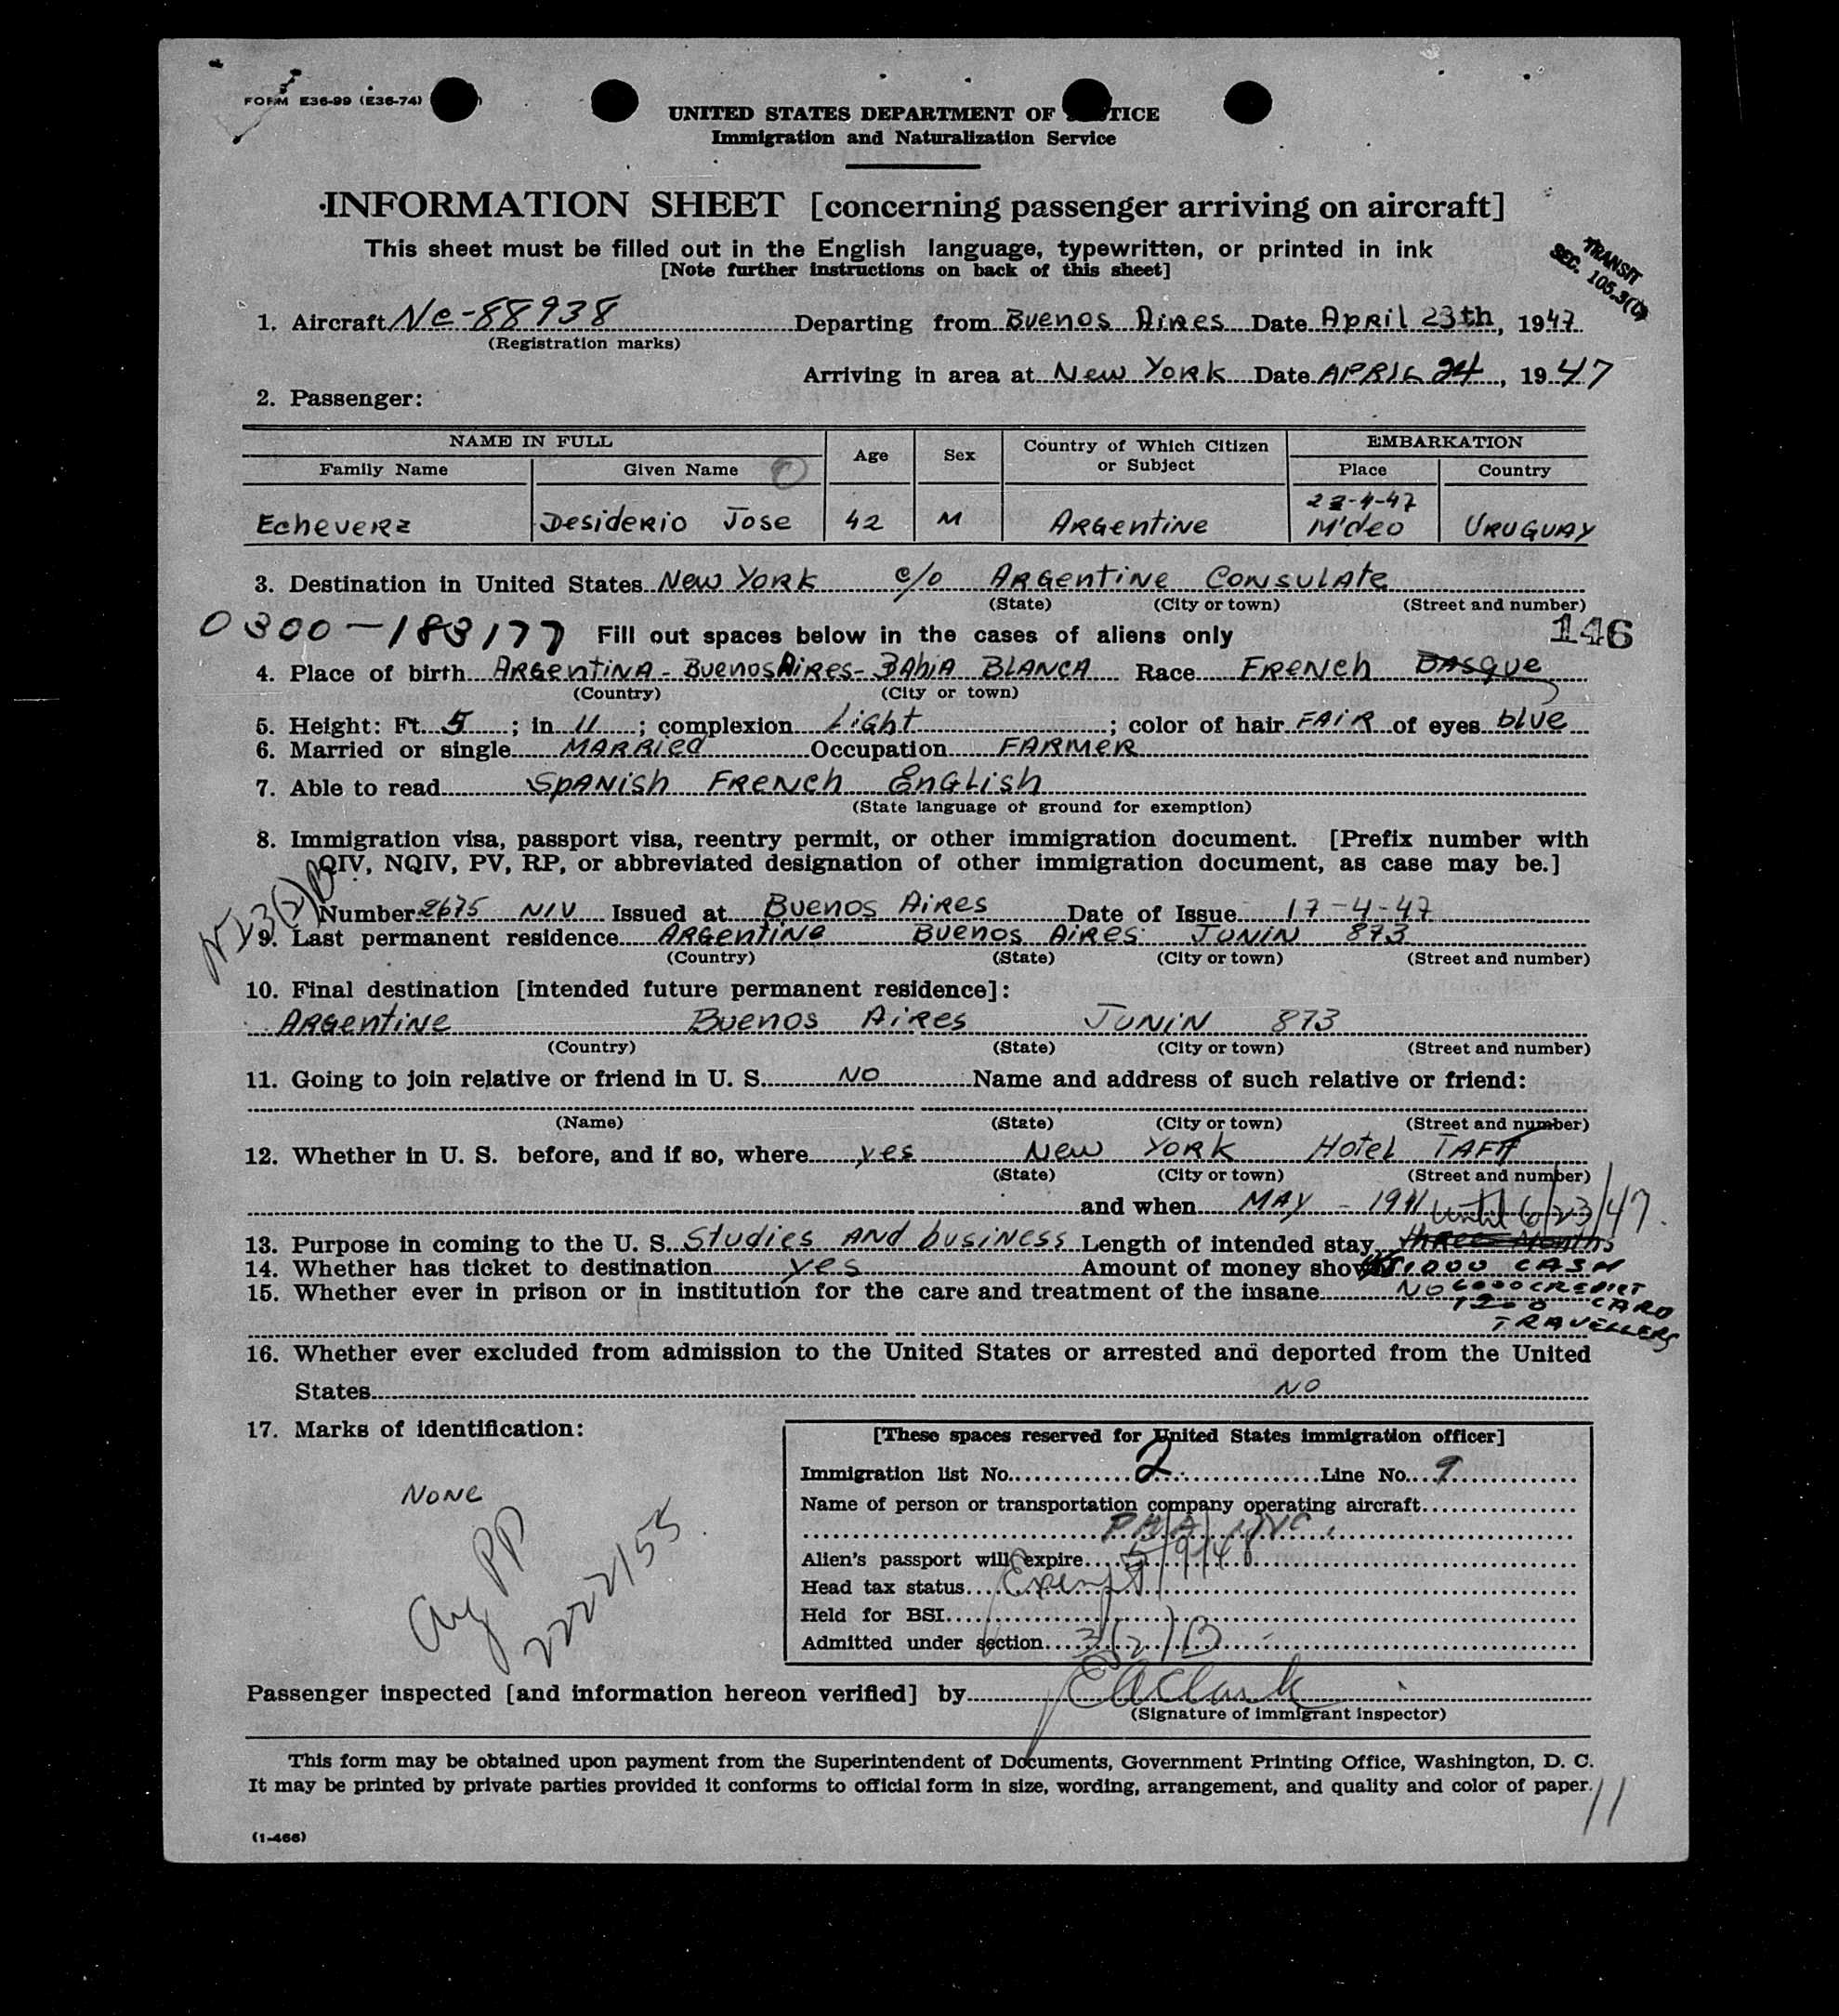 FORM E36-99 (E36-74)
UNITED STATES DEPARTMENT OF TICE
Immigration and Naturalization Service
INFORMATION SHEET [concerning passenger arriving on aircraft]
This sheet must be filled out in the English language, typewritten, or printed in ink
[Note further instructions on back of this sheet]
TRANSIT
SEC. 105.3(
1. Aircraft Nc-88938 Departing from Buenos Aires Date April 23th, 1947
(Registration marks)
Arriving in area at New York Date APRIL 24, 19 47
2. Passenger:
NAME IN FULL Age Sex Country of Which Citizen or Subject EMBARKATION
Family Name Given Name Place Country
Echeverz Desiderio Jose 42 M Argentine M'deo Uruguay
3. Destination in United States New York c/o Argentine Consulate
(State) (City or town) (Street and number)
0300-183177 Fill out spaces below in the cases of aliens only 146
4. Place of birth Argentina - Buenos Aires - Bahia Blanca Race French Basque
(Country) (City or town)
5. Height: Ft. 5; in 11; complexion Light; color of hair FAIR of eyes blue
6. Married or single Married Occupation FARMER
7. Able to read Spanish French English
(State language or ground for exemption)
8. Immigration visa, passport visa, reentry permit, or other immigration document. [Prefix number with
QIV, NQIV, PV, RP, or abbreviated designation of other immigration document, as case may be.]
Number 2675 NIV Issued at Buenos Aires Date of Issue 17-4-47
9. Last permanent residence Argentine Buenos Aires Junin 873
(Country) (State) (City or town) (Street and number)
10. Final destination [intended future permanent residence]:
Argentine Buenos Aires Junin 873
(Country) (State) (City or town) (Street and number)
11. Going to join relative or friend in U. S. NO Name and address of such relative or friend:
(Name) (State) (City or town) (Street and number)
12. Whether in U. S. before, and if so, where yes New York Hotel TAFT
(State) (City or town) (Street and number)
and when MAY - until 6/23/47.
13. Purpose in coming to the U. S. Studies and business Length of intended stay three Months
14. Whether has ticket to destination yes Amount of money shown 1000 CASH
15. Whether ever in prison or in institution for the care and treatment of the insane NO 6000 CREDIT
CARD
TRAVELLERS
16. Whether ever excluded from admission to the United States or arrested and deported from the United
States NO
17. Marks of identification:
NONE
Arg PP
[These spaces reserved for United States immigration officer]
Immigration list No. 2 Line No. 9
Name of person or transportation company operating aircraft
Alien's passport will expire 5/9/48
Head tax status Exempt
Held for BSI
Admitted under section 3(2)B
Passenger inspected [and information hereon verified] by EAClark
(Signature of immigrant inspector)
This form may be obtained upon payment from the Superintendent of Documents, Government Printing Office, Washington, D. C.
It may be printed by private parties provided it conforms to official form in size, wording, arrangement, and quality and color of paper.
11
(1-466)